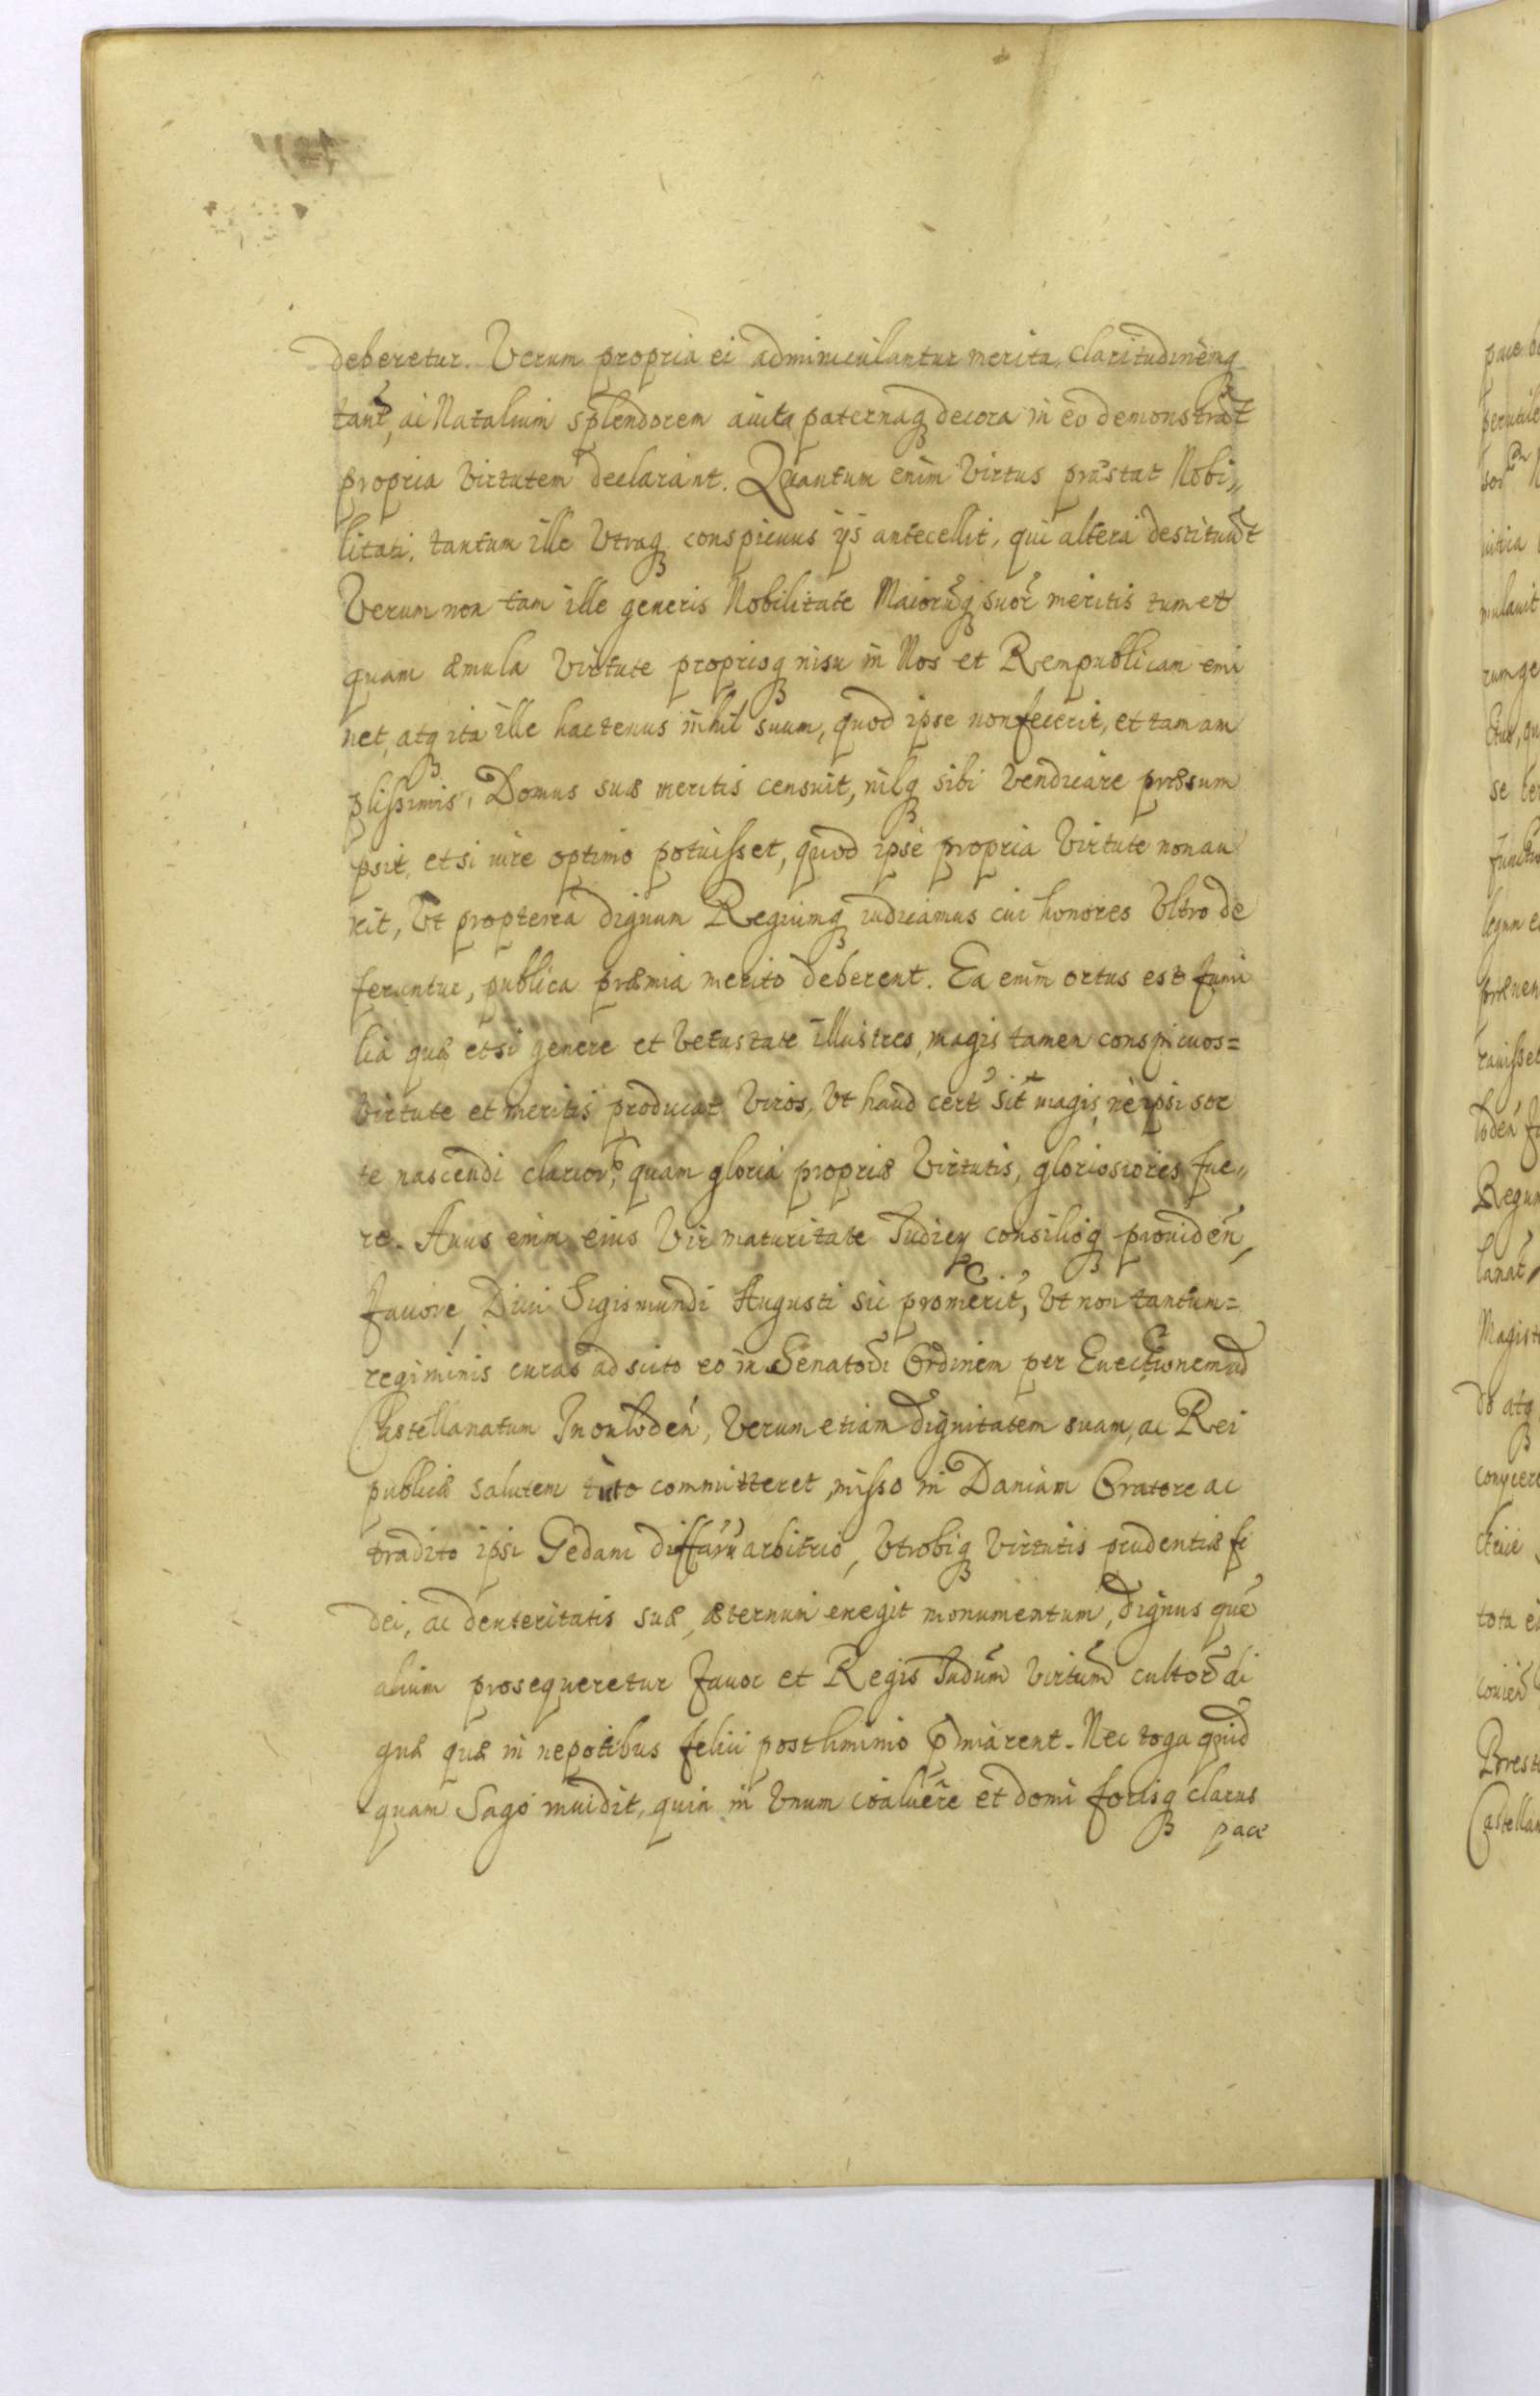 deberetur. Verum propria ei adminiculantur merita, claritudinemq̃
tant, ac Natalium splendorem auita paternaq̃ decora in eo demonstrãt
propria virtutem declarant. Quantum enim Virtus præstat Nobi„
litati, tantum ille Vtraq̃ conspicuus ijs antecellit, qui altera destituũt
Verum non tam ille generis Nobilitate Maiorũq̃ suor̃ meritis tumet
quam æmula Virtute proprioq̃ nisu in Nos et Rempublicam emi
net, atq̃ ita ille hactenus nihil suum, quod ipse non fecerit, et tam am
plissimis, Domus suæ meritis censuit, nilq̃ sibi vendicare præsum
psit, etsi iure optimo potuisset, quod ipse propria Virtute non au
xit, Vt propterea dignum Regiumq̃ iudicamus cui honores Vltro de
feruntur, publica præmia merito deberent. Ea enim ortus est fami
lia quæ etsi genere et vetustate illustres, magis tamen conspicuos=
virtute et meritis producat Viros, Vt haud cert̃ sit magis, ne ipsi sor
te nascendi clarior̃, quam gloria propriæ Virtutis, gloriosiores fue„
re. Auus enim eius Vir maturitate Iudicy consilioq̃ prouideñ,
fauore Diui Sigismundi Augusti sic promerit, Vt non tantum=
regiminis curas adscito eo in Senator̃ Ordinem per Euectionem ad
Castellanatum Inowlodeñ, Verum etiam dignitatem suam, ac Rei
publicæ salutem tuto committeret, misso in Daniam Oratore ac
tradito ipsi Gedani diffarũ arbitrio, Vtrobiq̃ Virtutis prudentiæ fi
dei, ac dexteritatis suæ, æternum exegit monumentum, dignus quẽ
alium prosequeretur fauor et Regis Iudum virtum̃ cultor̃ di
gnæ quæ in nepotibus felici postliminio p̃miarent. Nec toga quid
quam Sago inuidit, quin in Vnum coaluere et domi forisq̃ clarus
pace